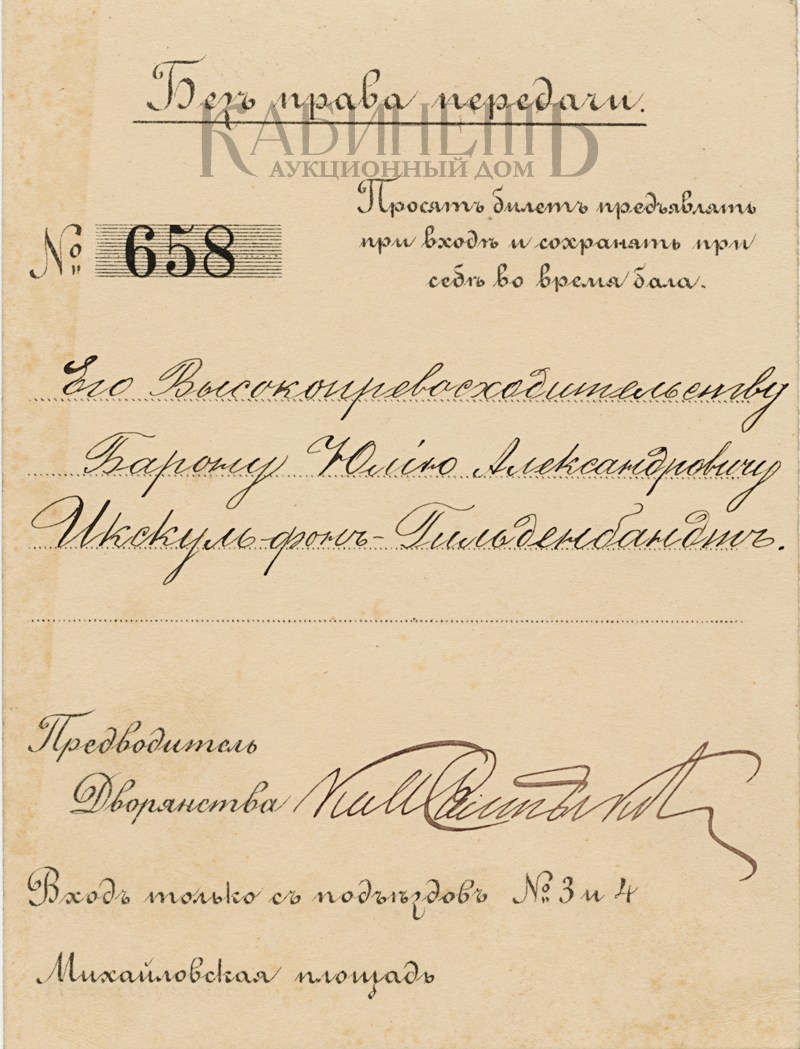 Безъ права передачи.
КАБИНЕТЪ
АУКЦИОННЫЙ ДОМ
Просятъ билетъ предъявлять
при входѣ и сохранять при
себѣ во время бала.
№ 658
Его Высокопревосходительству
Барону Юлію Александровичу
Икскуль-фонъ-Гильденбандтъ.
Предводитель
Дворянства
Салтыков
Входъ только съ подъѣздовъ № 3 и 4
Михайловская площадь